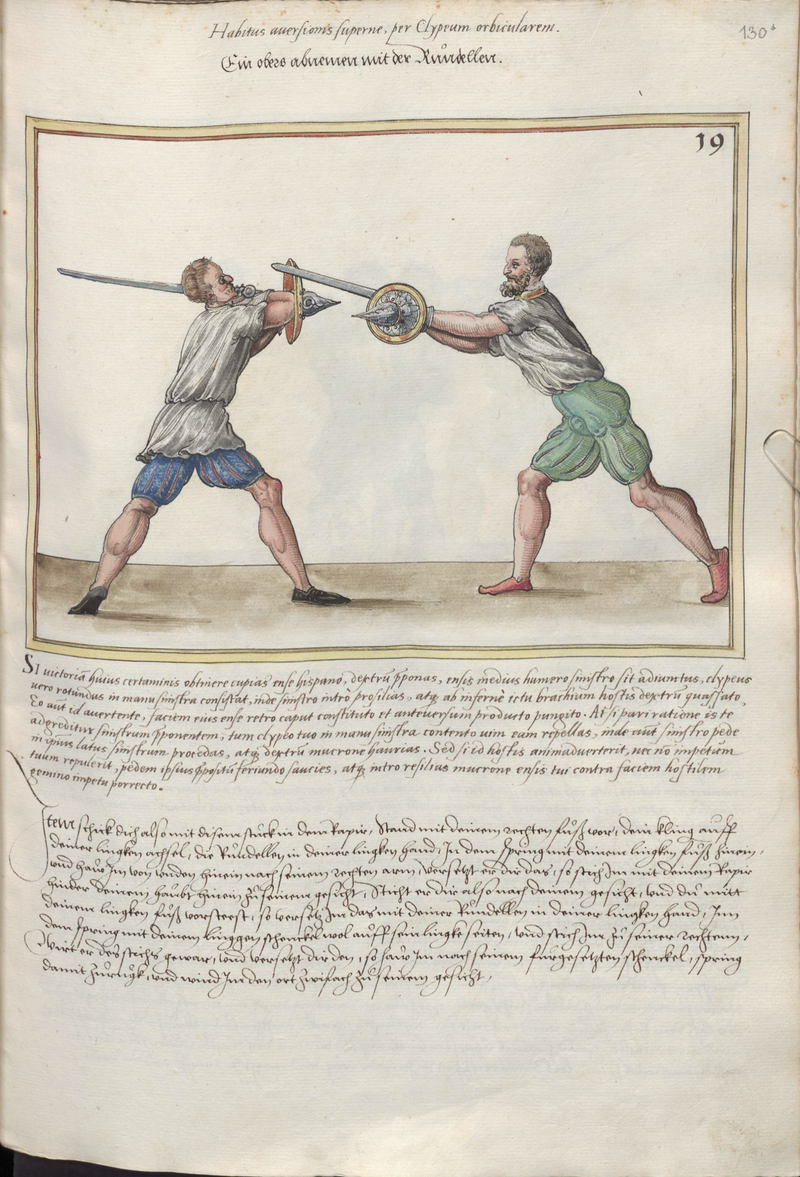 Habitus aversionis superne, per Clypeum orbicularem.
130
Ein obers abnemen mit der Rundellen.
19
SI victoriā huius certaminis obtinere cupias ense hispano, dextrū p̄ponas, ensis medius humero sinistro sit adiunctus, clypeus
vero rotundus in manu sinistra consistat, inde sinistro intro prosilias, atq; ab inferne ictu brachium hostis dextrū quassato,
Eo aūt id avertente, faciem eius ense retro caput constituto et anteversum producto pungito. At si pari ratione is te
adgreditur sinistrum p̄ponentem, tum clypeo tuo in manu sinistra contento vim eam repellas, inde aūt sinistro pede
in ipsius latus sinistrum procedas, atq; dextrū mucrone haurias. Sed si id hostis animadverterit, nec nō impetum
tuum repulerit, pedem ipsius p̄positū feriundo saucies, atq; intro resilias mucrone ensis tui contra faciem hostilem
gemino impetu porrecto.
Item schick dich also mit disem stuck in dem Rapir, Stand mit deinem rechten fuß vor, dein kling auff
deiner lingken achsel, die Rundellen in deiner lingken hand, In dem spring mit deinem lingken fuß hinein,
und haw Im von unden hinein nach seinem rechten arm, versetzt er dir das, so stich Im mit deinem Rapir
hinder deinem haubt hinein zu seinem gesicht, Sticht er dir also nach deinem gesicht, und du mitt
deinem lingken fuß vorsteest, so versetz Im das mit deiner Rundellen in deiner lingken hand, Inn
dem spring mit deinem linggen schenckel wol auff sein lingke seiten, und stich Im zu seiner rechtenn,
Wirt er des stichs gewar, und versetzt dir den, so haw Im nach seinem fürgesetzten schenckel, spring
damit zurugk, und wind Im den ort zwifach zu seinem gesicht,